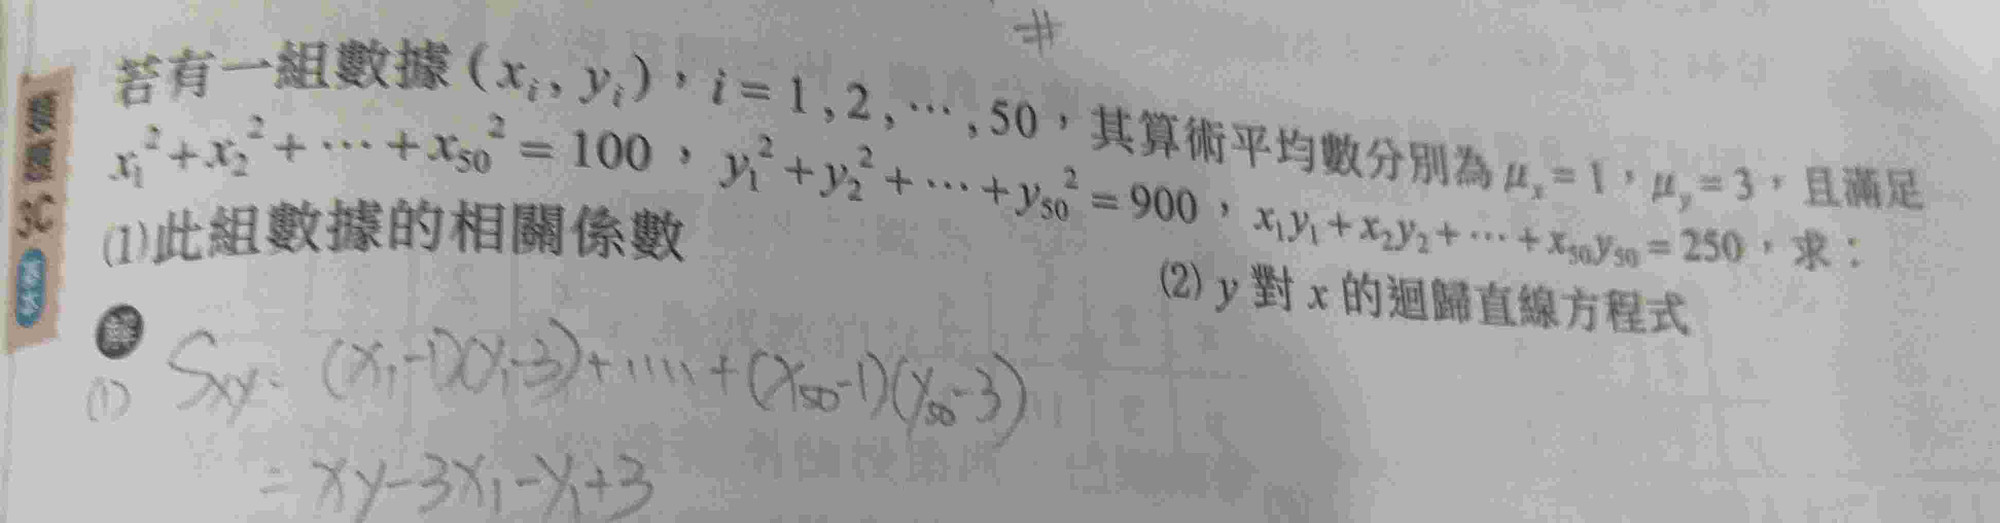 #
若有一組數據 (xᵢ, yᵢ)，i = 1, 2, ⋯, 50，其算術平均數分別為 μₓ = 1，μᵧ = 3，且滿足
x₁² + x₂² + ⋯ + x₅₀² = 100，y₁² + y₂² + ⋯ + y₅₀² = 900，x₁y₁ + x₂y₂ + ⋯ + x₅₀y₅₀ = 250，求：
(1) 此組數據的相關係數 (2) y 對 x 的迴歸直線方程式
解
(1) Sxy = (x₁-1)(y₁-3)+ ⋯⋯ +(x₅₀-1)(y₅₀-3)
= xy-3x₁-y₁+3
3C